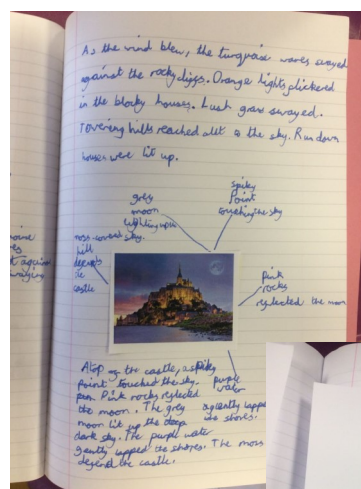 As the wind blew, the turquoise waves swayed
against the rocky cliffs. Orange lights flickered
in the blocky houses. Lush grass swayed.
Towering hills reached to the sky. Run down
houses were lit up.
spiky
point
touching the sky
grey
moon
lighting up the
sky.
moss-covered
hill
defends
the
castle
pink
rocks
reflected the moon
purple
water
gently lapped
the shores.
Atop of the castle, a spiky
point touched the sky.
Pink rocks reflected
the moon. The grey
moon lit up the deep
dark sky. The purple water
gently lapped the shores. The moss
defend the castle.